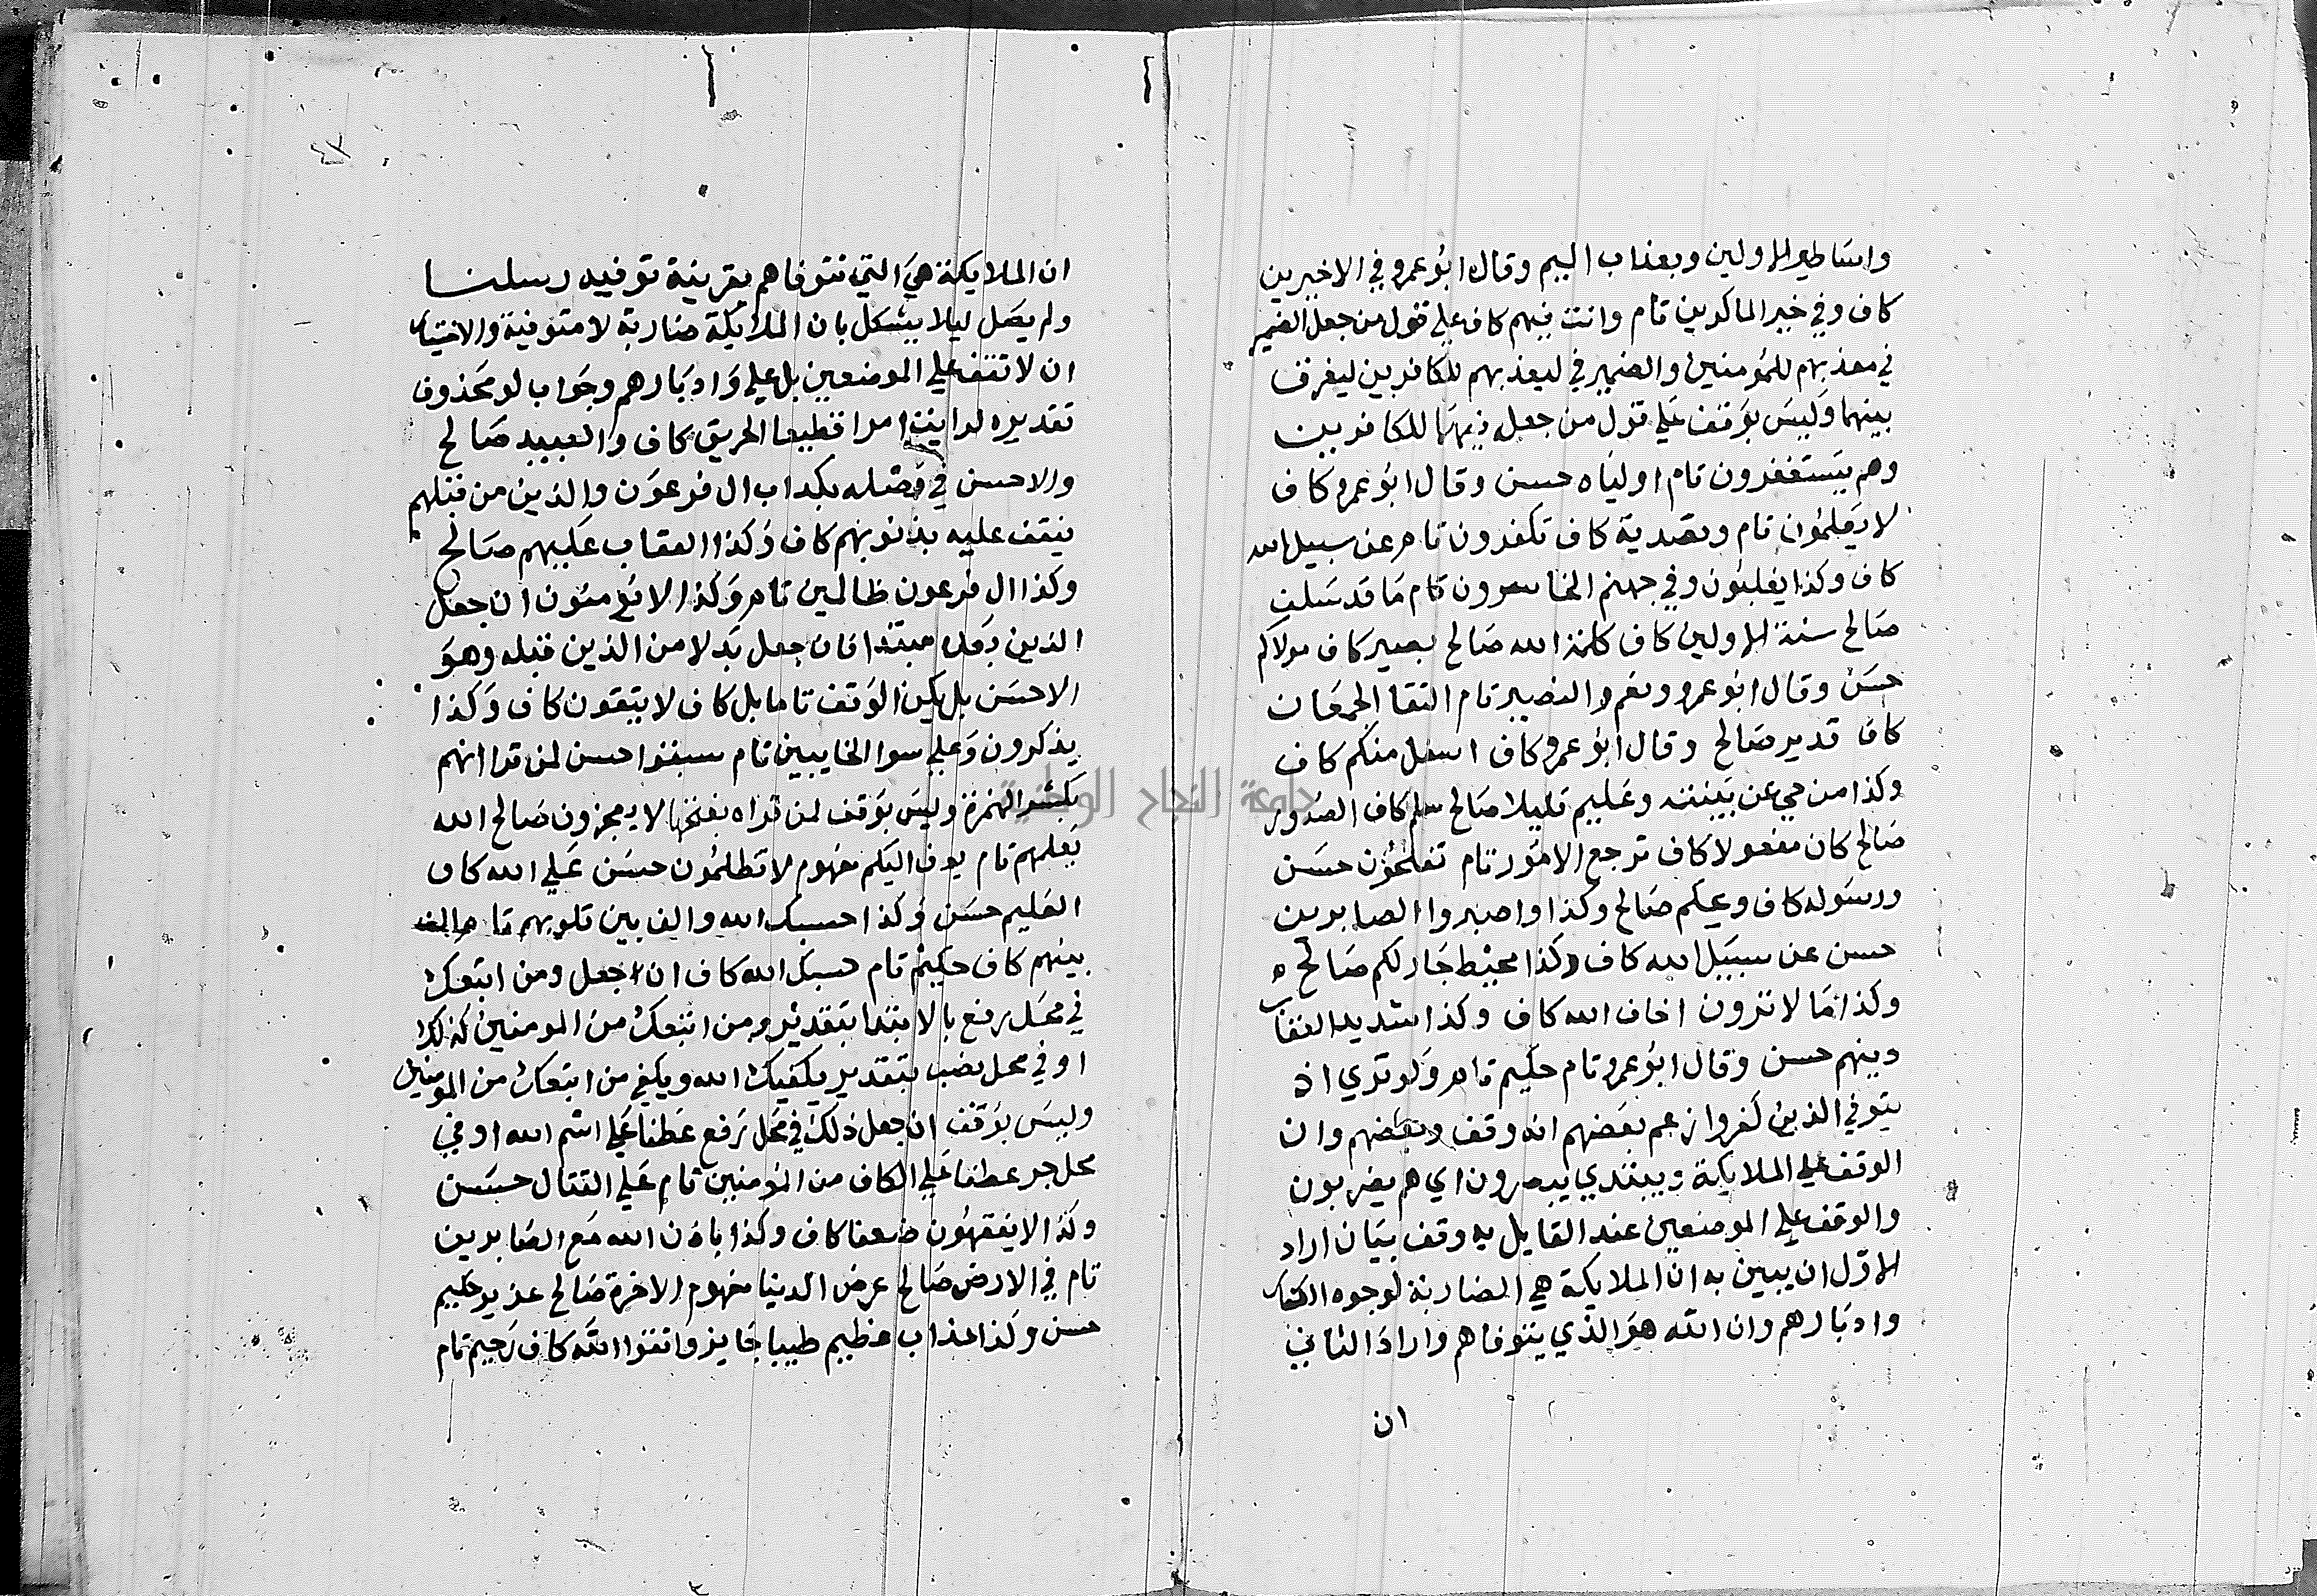 واساطير الاولين وبعذاب اليم وقال ابو عمرو في الاخيرين
كاف وفي خير الماكرين تام وانت فيهم كاف علي قول من جعل الضمير
في معذبهم للمؤمنين والضمير في ليعذبهم للكافرين ليفرق
بينهما وليس بوقف علي قول من جعل فيهما للكافرين
وهم يستغفرون تام اولياه حسن وقال ابو عمرو كاف
لا يعلمون تام وتصدية كاف تكفرون تام عن سبيل الله
كاف وكذا يغلبون وفي جهنم الخاسرون تام ما قد سلف
صالح سنة الاولين كاف كلمة الله صالح بصير كاف مولاكم
حسن وقال ابو عمرو ونعم والنصير تام التقا الجمعان
كاف قدير صالح وقال ابو عمرو كاف اسفل منكم كاف
وكذا من حي عن بينة وعليم قليلا صالح سلم كاف الصدور
صالح كان مفعولا كاف ترجع الامور تام تفلحون حسن
ورسوله كاف وعكم صالح وكذا واصبروا الصابرين
حسن عن سبيل الله كاف وكذا محيط جار لكم صالح
وكذا ما لا ترون اخاف الله كاف وكذا شديد العقاب
دينهم حسن وقال ابو عمرو تام حكيم تام ولو تري اذ
يتوفي الذين كفروا زعم بعضهم انه وقف وبعضهم وان
الوقف علي الملايكة ويبتدي يضربون اي هم يضربون
والوقف علي الموضعين عند القايل به وقف بيان اراد
الاول ان يبين به ان الملايكة هي الضاربة لوجوه الكفار
وادبارهم وان الله هو الذي يتوفاهم واراد الثاني
ان
ان الملايكة هي التي تتوفاهم بقرينة توفيه رسلنا
ولم يصل ليلا يشكل بان الملايكة ضاربة لا متوفية والاختيار
ان لا تقف علي الموضعين بل علي وادبارهم وجواب لو محذوف
تقديره لرايت امرا فظيعا الحريق كاف والعبيد صالح
والاحسن في وصله بكداب ال فرعون والذين من قبلهم
فيقف عليه بذنوبهم كاف وكذا العقاب عليهم صالح
وكذا ال فرعون ظالمين تام وكذا لا يؤمنون ان جعل
الذين بعده مبتدا فان جعل بدلا من الذين قبله وهو
الاحسن بل يكن الوقف تاما بل كاف لا يتقون كاف وكذا
يذكرون وعلي سوا الخايبين تام سبقوا حسن لمن قرا انهم
بكسر الهمزة وليس بوقف لمن قراه بفتحها لا يعجزون صالح الله
يعلمهم تام يوف اليكم مفهوم لا تظلمون حسن علي الله كاف
العليم حسن وكذا حسبك الله والف بين قلوبهم تام الف
بينهم كاف حكيم تام حسبك الله كاف ان جعل ومن اتبعك
في محل رفع بالابتدا بتقدير ومن اتبعك من المومنين كذلك
او في محل نصب بتقدير يكفيك الله ويكفي من اتبعك من المومنين
وليس بوقف ان جعل ذلك في محل رفع عطفا علي اسم الله او في
محل جر عطفا علي الكاف من المؤمنين تام علي القتال حسن
وكذا لا يفقهون ضعفا كاف وكذا باذن الله مع الصابرين
تام في الارض صالح عرض الدنيا مفهوم الاخرة صالح عزيز حكيم
حسن وكذا عذاب عظيم طيبا جايز واتقوا الله كاف رحيم تام
جامعة النجاح الوطنية